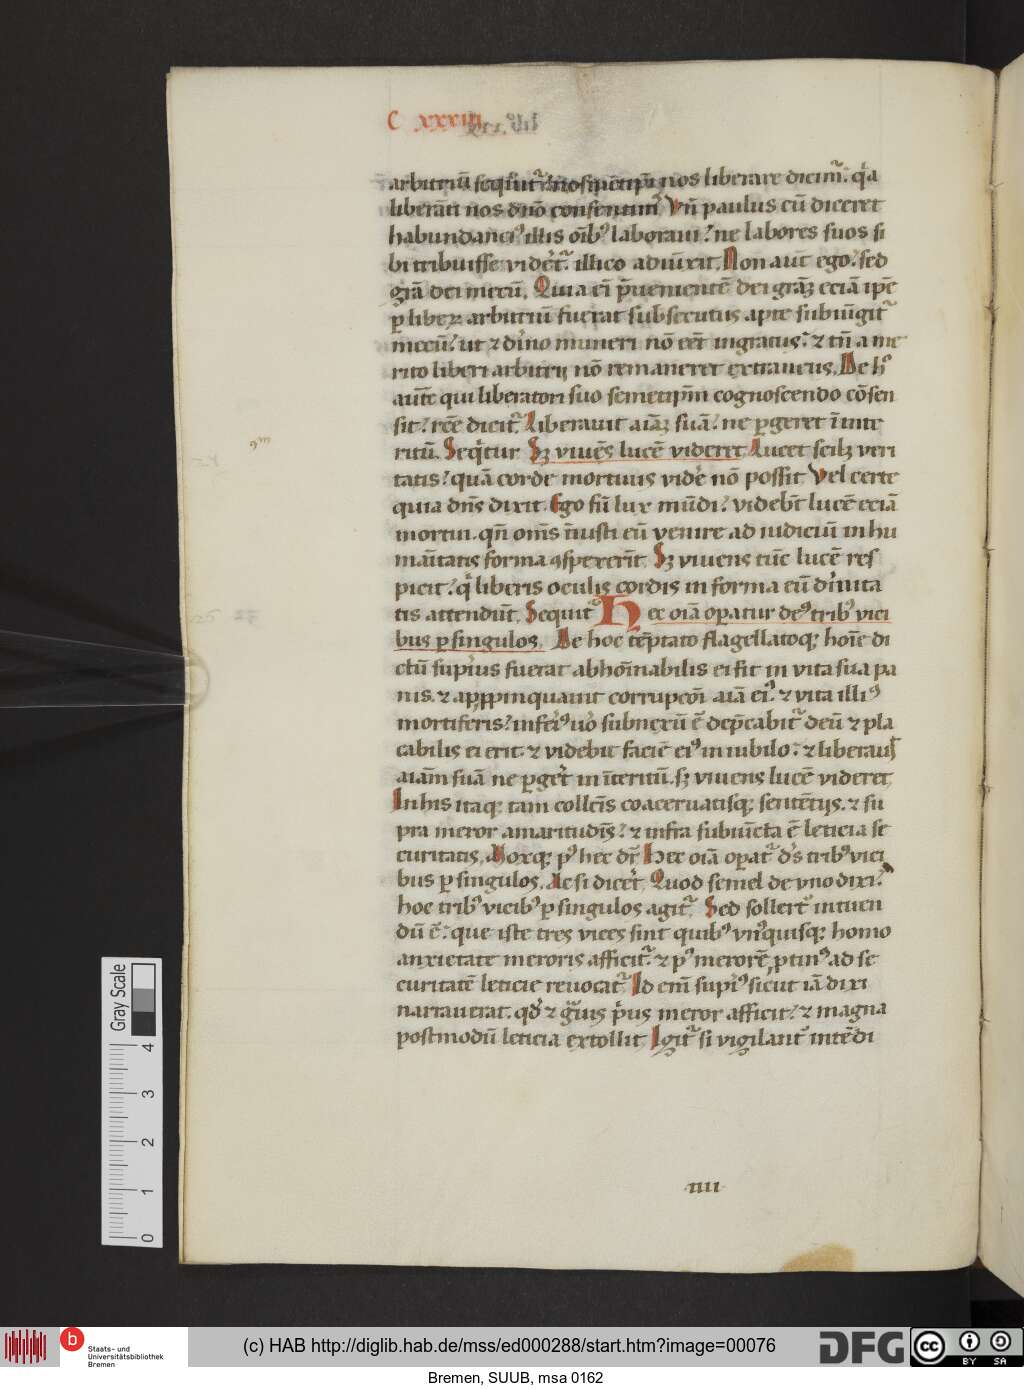 C xxxiii
arbitriū sequit᷑ nosmetip̄i nos liberare dicim᷑. q̇a
liberāti nos dn̄o consentim᷑ Vn̄ paulus cū diceret
habundanci᷒ illis oīb᷒ laboraui. ne labores suos si
bi tribuisse videret᷑. illico adiūxit. Non aut̄ ego. sed
gr̄a dei mecū. Quia ei p̄uenientē dei gr̄aꝫ eciā ip̄e
ꝑ liberꝝ arbitriū fuerat subsecutus apte subūgit᷑
mecū. ut ⁊ diūno muneri nō eēt ingratus. ⁊ tn̄ a me
rito liberi arbitrij nō remaneret extraneus. De h᷒
aut̄e qui liberatori suo semetip̄m cognoscendo cōsen
sit. rc̄e dicit᷑. Liberauit aīaꝫ suā. ne ꝑgeret ī inte
ritū. Seq̇tur Sꝫ viuēs lucē videret. Lucet scilꝫ veri
tatis. quā corde mortuus vide nō possit Vel certe
quia dn̄s dixit. Ego sū lux mūdi. videbt̄ lucē eciā
mortui. qn̄ om̄s īiusti eū venire ad iudiciū in hu
māitatis forma ꝯspexerīt. Sꝫ viuens tūc lucē res
picit. q̇ liberis oculis cordis in forma eū diūita
tis attendūt. Sequit᷑ Hec oīā oꝑatur de᷒ trib᷒ vici
bus ꝑ singulos. De hoc tēptato flagellatoqꝫ hoīe di
ctū supius fuerat abhoīnabilis ei fit in vita sua pa
nis. ⁊ apꝓpinquauit corrupcōi aīā ei᷒. ⁊ vita illi᷒
mortiferis. inferi᷒ uō subnexū ē dep̄cabit᷑ deū ⁊ pla
cabilis ei erit. ⁊ videbit faciē ei᷒ in iubilo. ⁊ liberauit
aīam suā ne ꝑgeret in īteritū. sꝫ viuens lucē videret.
In his itaqꝫ tam collectis coaceruatisqꝫ sentētijs. ⁊ su
pra meror amaritudīs. ⁊ infra subiūcta ē leticia se
curitatis. Moxqꝫ p᷒ hec dr̄ Hec oīā oꝑat᷑ ds̄ trib᷒ vici
bus ꝑ singulos. Ac si dicet. Quod semel de vno dixi.
hoc trib᷒ vicib᷒ ꝑ singulos agit᷑. Sed sollert᷑ intuen
dū ē. que iste tres vices sint quib᷒ vn᷒quisqꝫ homo
anxietate meroris afficit᷑. ⁊ p᷒ merorē ꝓtin᷒ ad se
curitatē leticie reuocat᷑ Id em̄ supi᷒ sicut iā dixi
narrauerat. qd̄ ⁊ gͣuis p̄us meror afficit. ⁊ magna
postmodū leticia extollit Igit᷑ si vigilant᷑ intēdi
iiii
Gray Scale
0 1 2 3 4
b
Staats- und
Universitätsbibliothek
Bremen
(c) HAB http://diglib.hab.de/mss/ed000288/start.htm?image=00076
DFG
cc BY SA
Bremen, SUUB, msa 0162